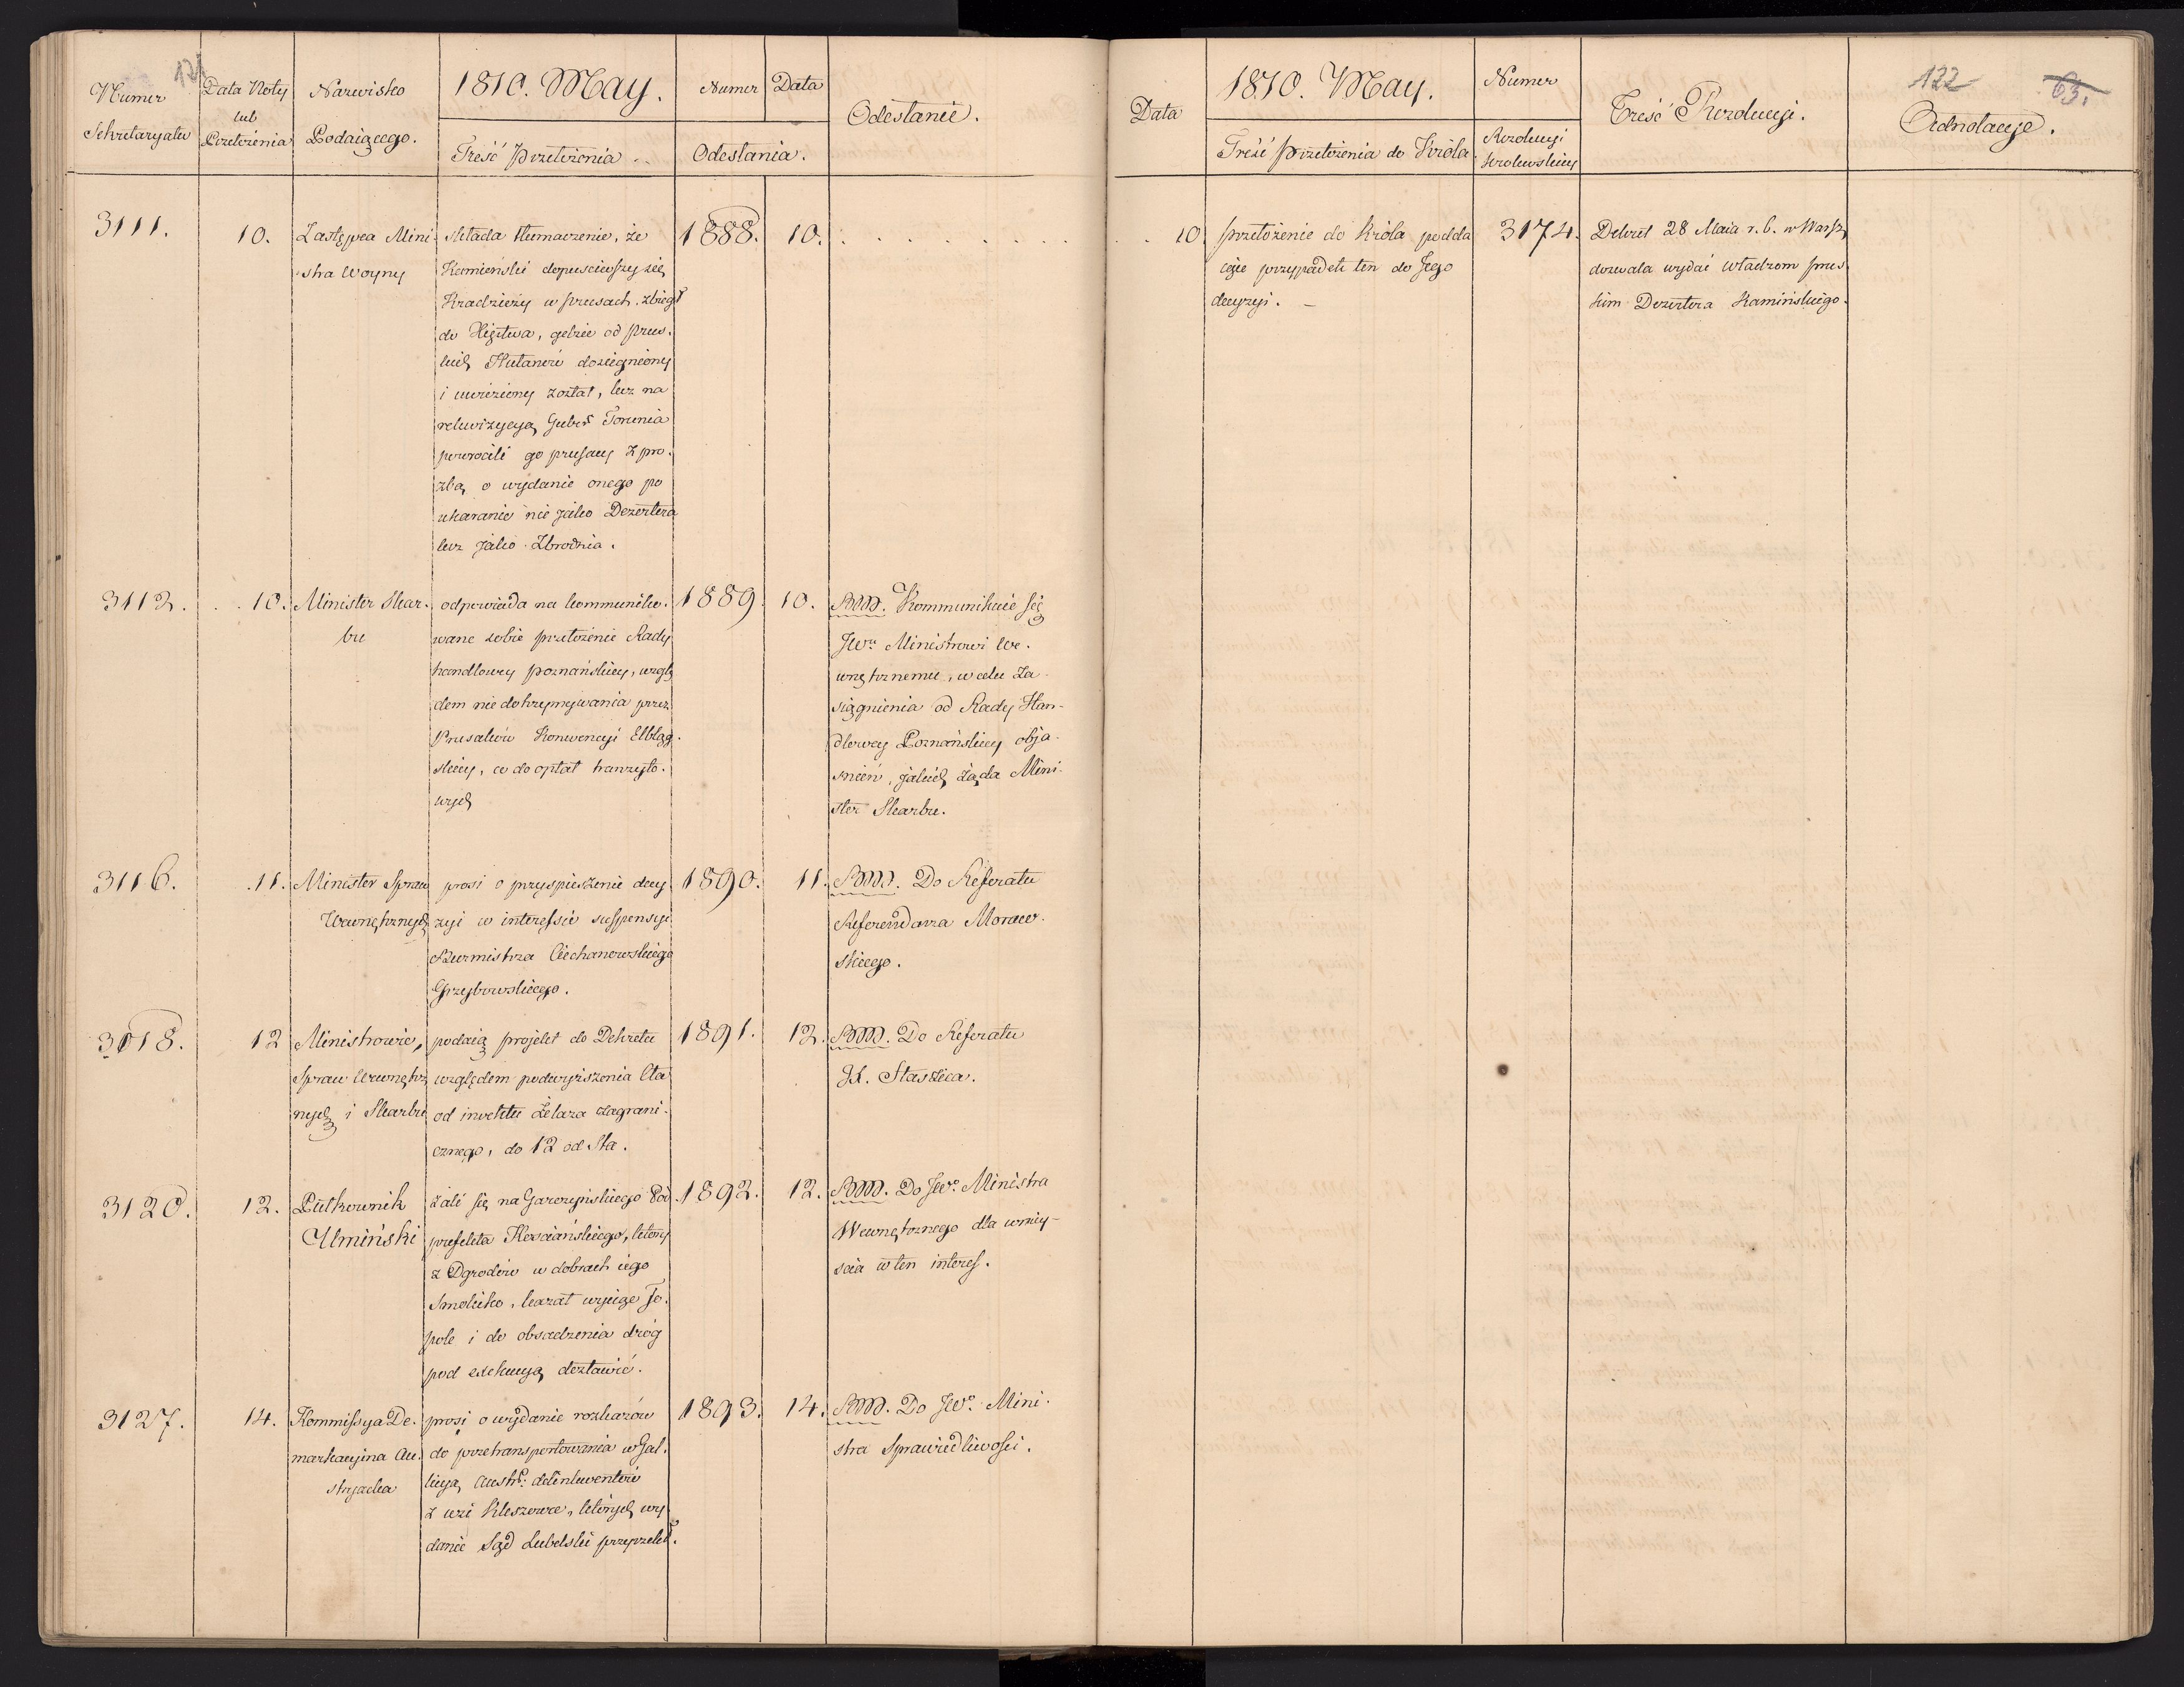 121
Numer
Sekretaryatu
Data Noty
lub
Przełożenia
Nazwisko
Podaiącego.
1810. May.
Treść Przełożenia
Numer
Data
Odesłania.
Odesłanie.
3111.
10.
Zastępca Mini-
stra Woyny
składa tłumaczenie, że
Kamieński dopuściwszy się
Kradzieży w prusach zbiegł
do Xięstwa, gdzie od prus-
kich Hułanów dosiegniony
i uwięziony został, lecz na
rekwizycyą Gubra Torunia
powrócili go prusacy z pro-
zbą o wydanie onego po
ukaranie nie jako Dezertera
lecz jako Zbrodnia.
1888.
10.
3112.
10.
Minister Skar-
bu
odpowiada na kommuniko-
wane sobie przełożenie Rady
handlowey poznańskiey, wzglę
dem niedotrzymywania przez
Prusaków Konwencyi Elbląg-
skiey, co do opłat tranzyto-
wych
1889.
10.
BMM. Kommunikuie się
JWu Ministrowi We-
wnętrznemu, w celu Za-
siągnienia od Rady Han-
dlowey Poznańskiey obja-
śnień, jakich żąda Mini-
ster Skarbu.
3116.
11.
Minister Spraw
Wewnętrznych
prosi o przyspieszenie decy-
zyi w interessie suspensyi
Burmistrza Ciechanowskiego
Grzybowskiego.
1890.
11.
BMM. Do Referatu
Referendarza Moraw-
skiego.
3118.
12
Ministrowie,
Spraw Wewnętrz
nych i Skarbu
podaią projekt do Dekretu
względem podwyższenia Cła
od inwektu Żelaza zagrani-
cznego, do 12 od Sta.
1891.
12.
BMM. Do Referatu
JX. Staszica.
3120.
12.
Pułkownik
Umiński
żali się na Garczyńskiego Pod-
prefekta Kościańskiego, który
z Ogrodów w dobrach iego
Smolicko, kazał wyciąć To-
pole i do obsadzenia dróg
pod exekucyą dostawić.
1892.
12.
BMM. Do JWo Ministra
Wewnętrznego dla wniy-
ścia w ten interes.
3127.
14.
Kommissya De-
markacyina Au-
stryacka
prosi o wydanie rozkazów
do przetransportowania w Gal-
licyą Austr: delinkwentów
z wsi Kleszowce, których wy
danie Sąd Lubelski przyrzekł.
1893.
14.
BMM. Do JWo Mini-
stra Sprawiedliwości.
122
63.
Data
1810. May.
Treść Przełożenia do Króla
Numer
Rezolucyi
Królewskiey
Treść Rezolucyi.
Adnotacye.
10
przełożenie do Króla podda
iące przypadek ten do Jego
decyzyi. -
3174.
Dekret 28 Maia r. b. w Warsz,
dozwala wydać władzom prus-
kim Dezertera Kamińskiego.